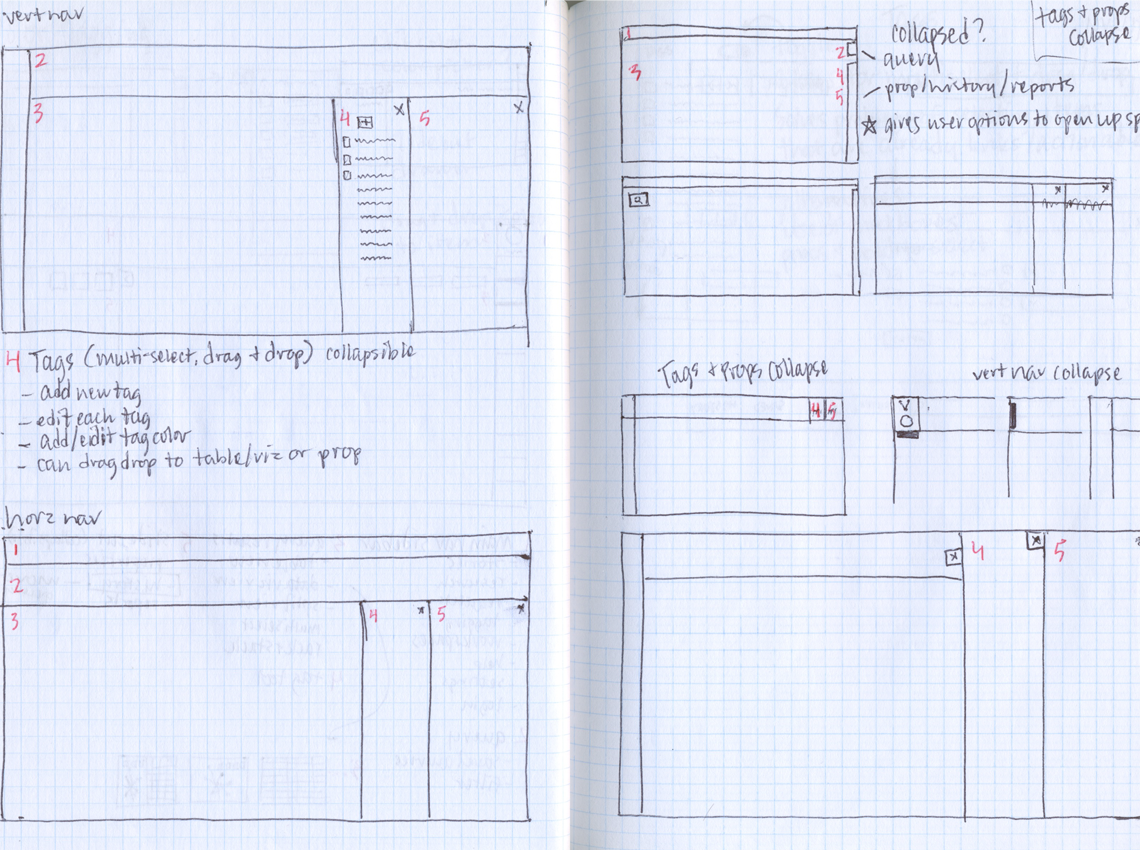 vert nav
2
3
4
x
5
x
4 Tags (multi-select, drag + drop) collapsible
- add new tag
- edit each tag
- add/eidit tag color
- can drag drop to table/viz or prop
horz nav
1
2
3
4
x
5
x
1
2
3
4
5
collapsed?
query
prop/history/reports
☆ gives user options to open up sp
tags + props
collapse
Q
x
x
Tags + Props Collapse
4 5
vert nav collapse
V
O
x
4
x
5
x